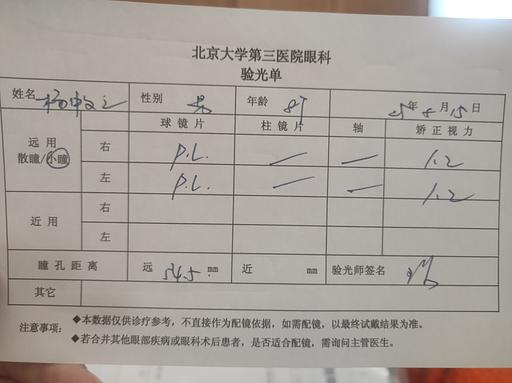 北京大学第三医院眼科
验光单
姓名 性别 男 年龄 8岁 25年8月15日
球镜片 柱镜片 轴 矫正视力
远用 散瞳/小瞳 右 P.L. — — 1.2
左 P.L. — — 1.2
近用 右
左
瞳孔距离 远 54.5 mm 近 mm 验光师签名
其它
注意事项: ◆本数据仅供诊疗参考,不直接作为配镜依据,如需配镜,以最终试戴结果为准。
◆若合并其他眼部疾病或眼科术后患者,是否适合配镜,需询问主管医生。